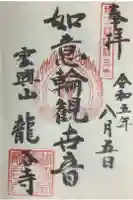 奉拝
令和五年
八月五日
如意輪観世音
雲興山 龍谷寺